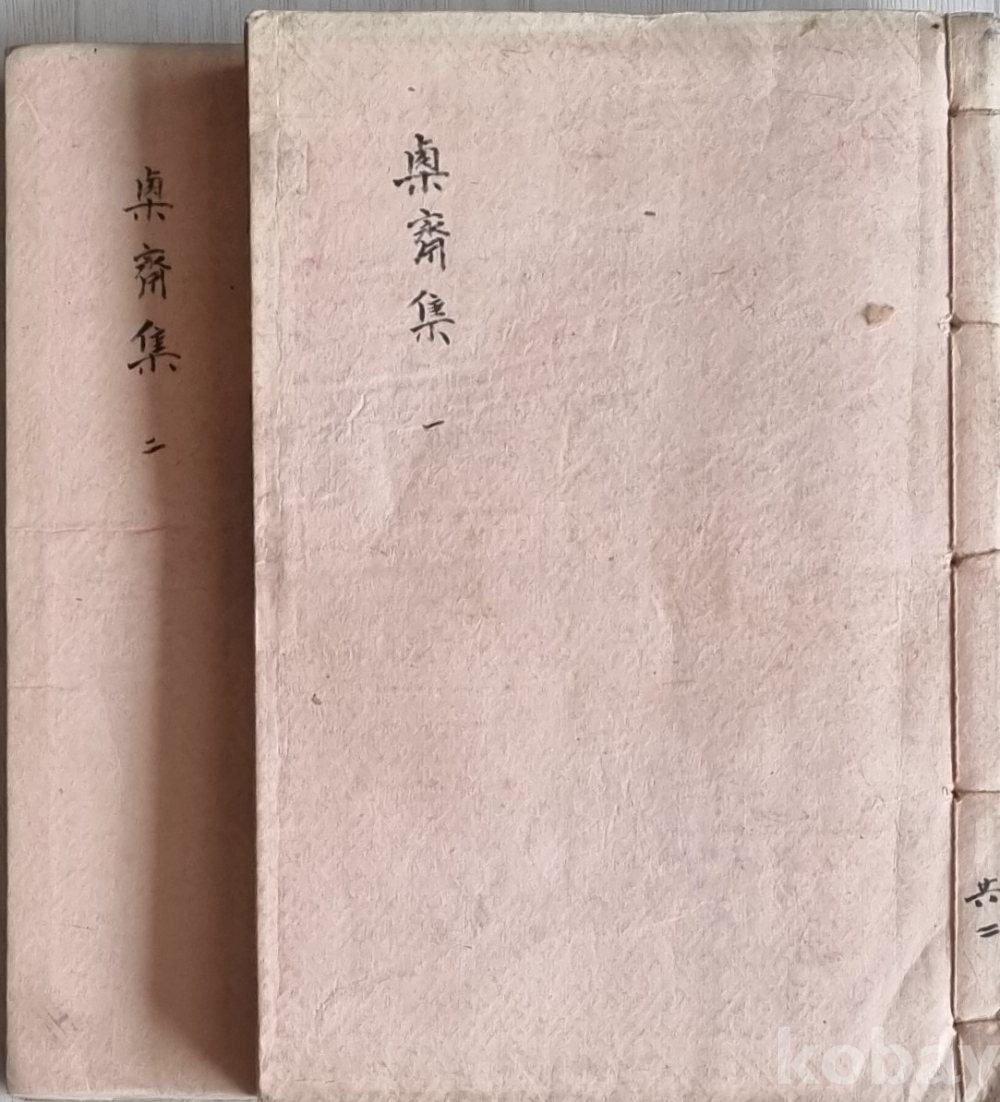 㮚齋集 一
㮚齋集 二
共二
kobay